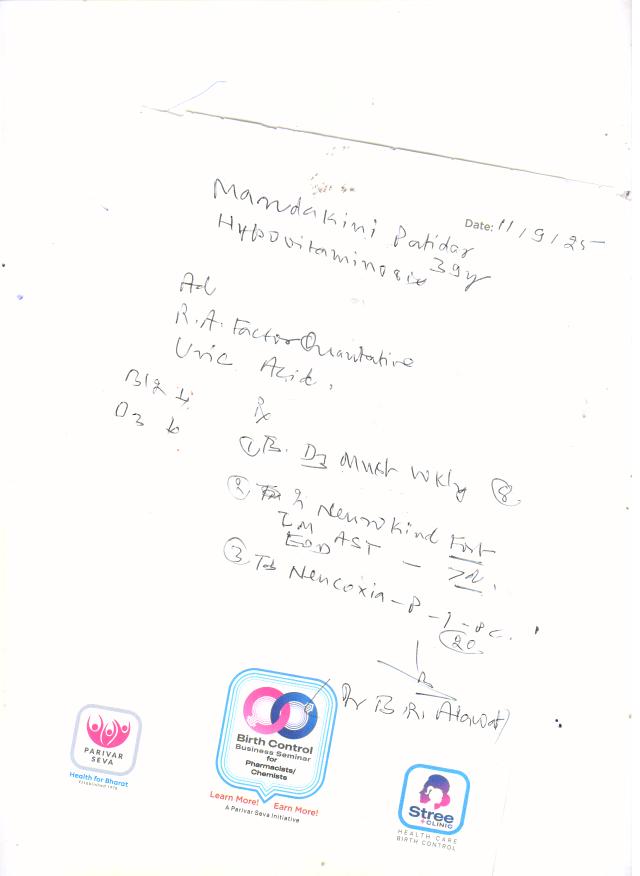 Mandakini Patidar
Date: 11/9/25
39y
Hypovitaminosis
Ad
R.A. Factor Quantitative
Uric Acid,
B12 ↓
D3 ↓
Rx
① D3 Must Wkly ⑧
② Neurokind Fort
IM AST
EOD
③ Tab Neucoxia-P - 1 -
20
Dr B.R.
PARIVAR
SEVA
Health for Bharat
ESTABLISHED 1978
Birth Control
Business Seminar
for
Pharmacists/
Chemists
Learn More! Earn More!
A Parivar Seva Initiative
Stree
+CLINIC
HEALTH CARE
BIRTH CONTROL